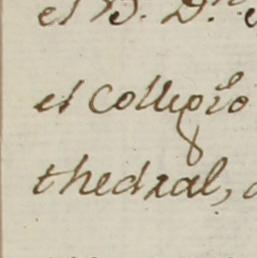 el B. D.ⁿ
el Collegio
thedral,